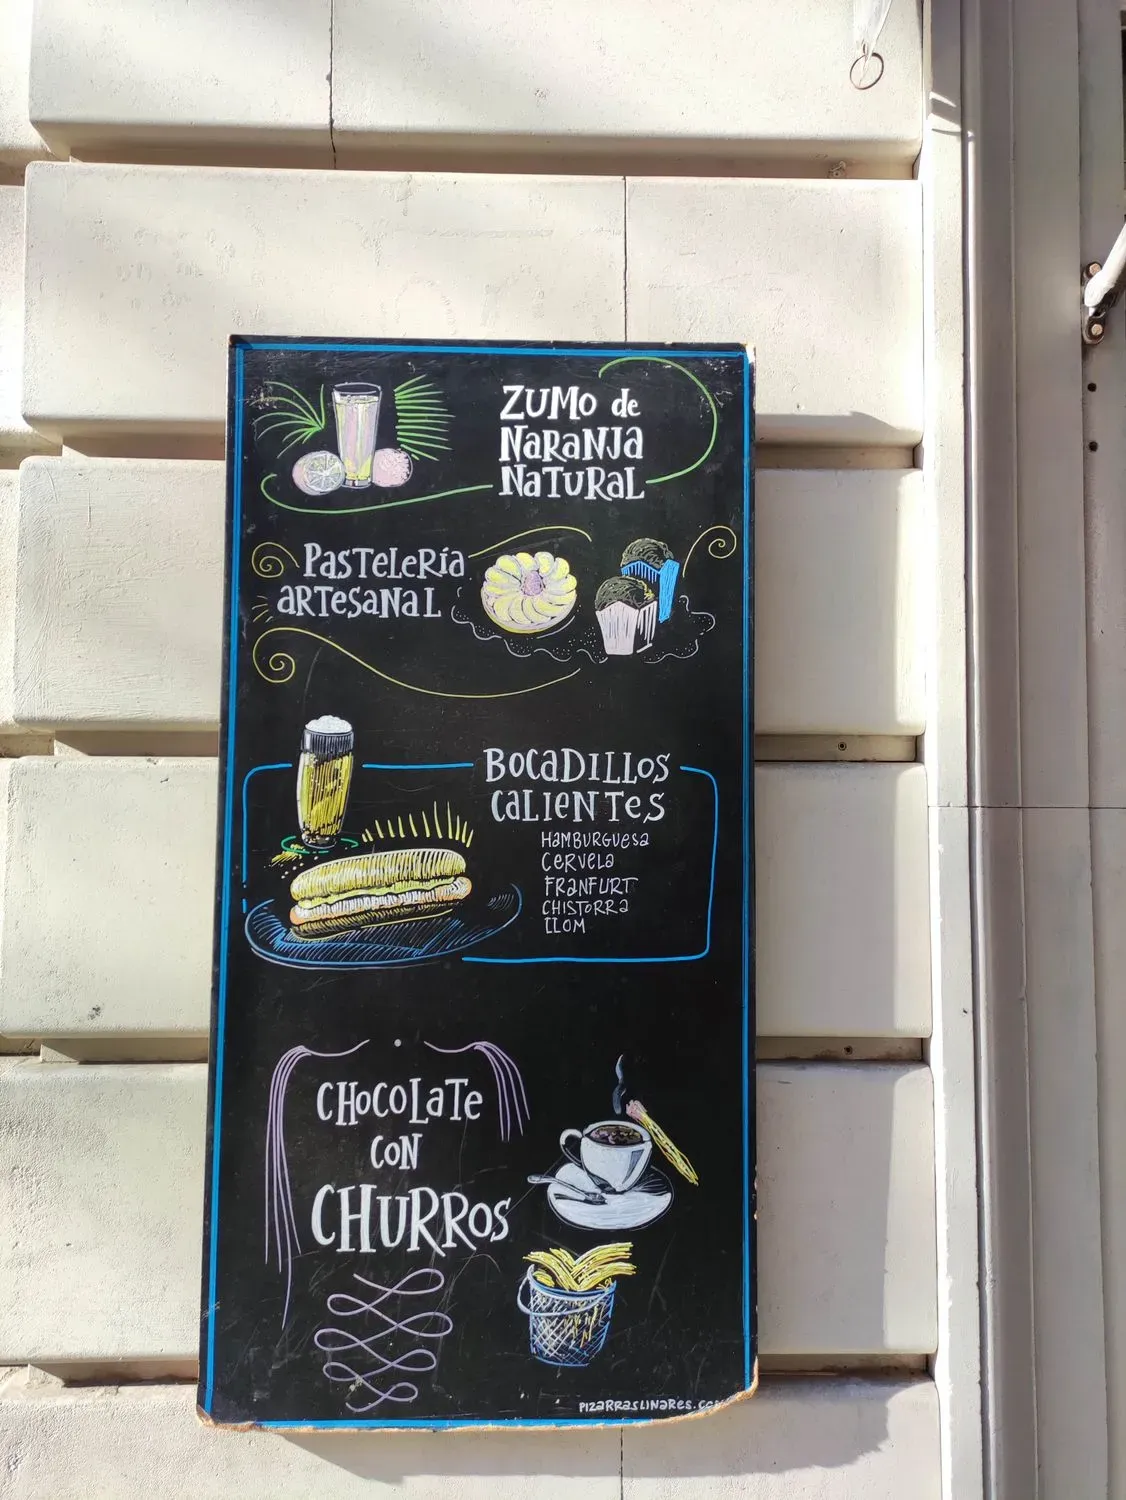 ZUMO de
NARANJA
NATURAL
PASTELERÍA
ARTESANAL
BOCADILLOS
CALIENTES
HAMBURGUESA
CERVELA
FRANFURT
CHISTORRA
LLOM
CHOCOLATE
CON
CHURROS
PIZARRASLINARES.CO